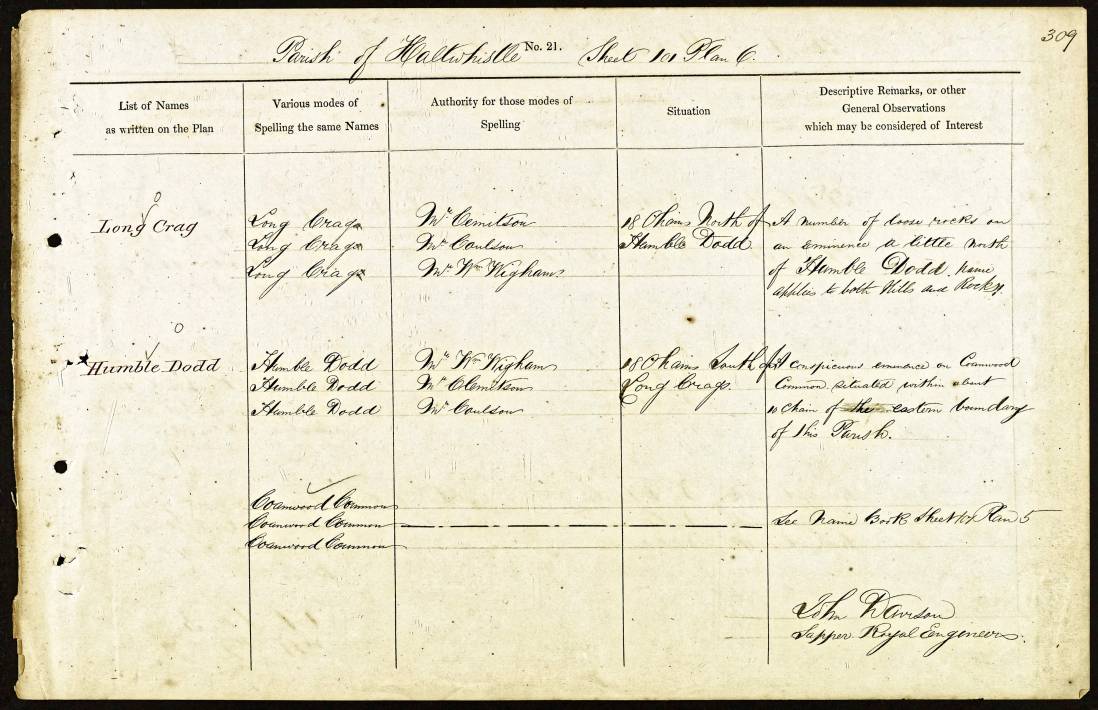 309
Parish of Haltwhistle No. 21. Sheet 101 Plan 6.
List of Names
as written on the Plan
Various modes of
Spelling the same Names
Authority for those modes of
Spelling
Situation
Descriptive Remarks, or other
General Observations
which may be considered of Interest
Long Crag
Long Crag
Long Crag
Long Crag
Mr. Clemitson
Mr. Coulson
Mr. Wm. Wigham
18 Chains North of
Humble Dodd
A number of loose rocks on
an eminence a little north
of Humble Dodd, name
applies to both Hills and Rocks.
Humble Dodd
Humble Dodd
Humble Dodd
Humble Dodd
Mr. Wm. Wigham
Mr. Clemitson
Mr. Coulson
18 Chains South of
Long Crags.
A conspicuous eminence on Coanwood
Common situated within about
10 Chain of the eastern boundary
of this Parish.
Coanwood Common
Coanwood Common
Coanwood Common
See Name Book Sheet 101 Plan 5
John Dawson
Sapper Royal Engineers.